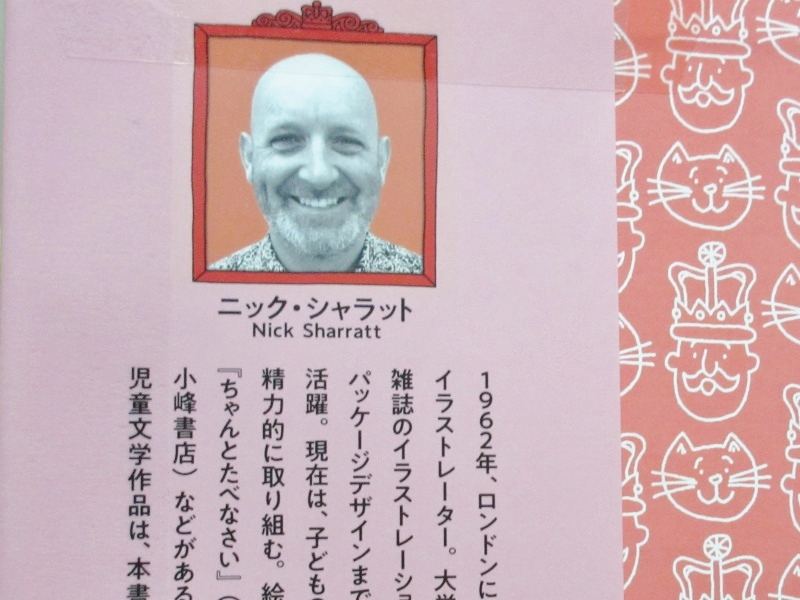 ニック・シャラット
Nick Sharratt
1962年、ロンドンに
イラストレーター。大学
雑誌のイラストレーショ
パッケージデザインまで
活躍。現在は、子どもの
精力的に取り組む。絵
『ちゃんとたべなさい』（
小峰書店）などがある
児童文学作品は、本書